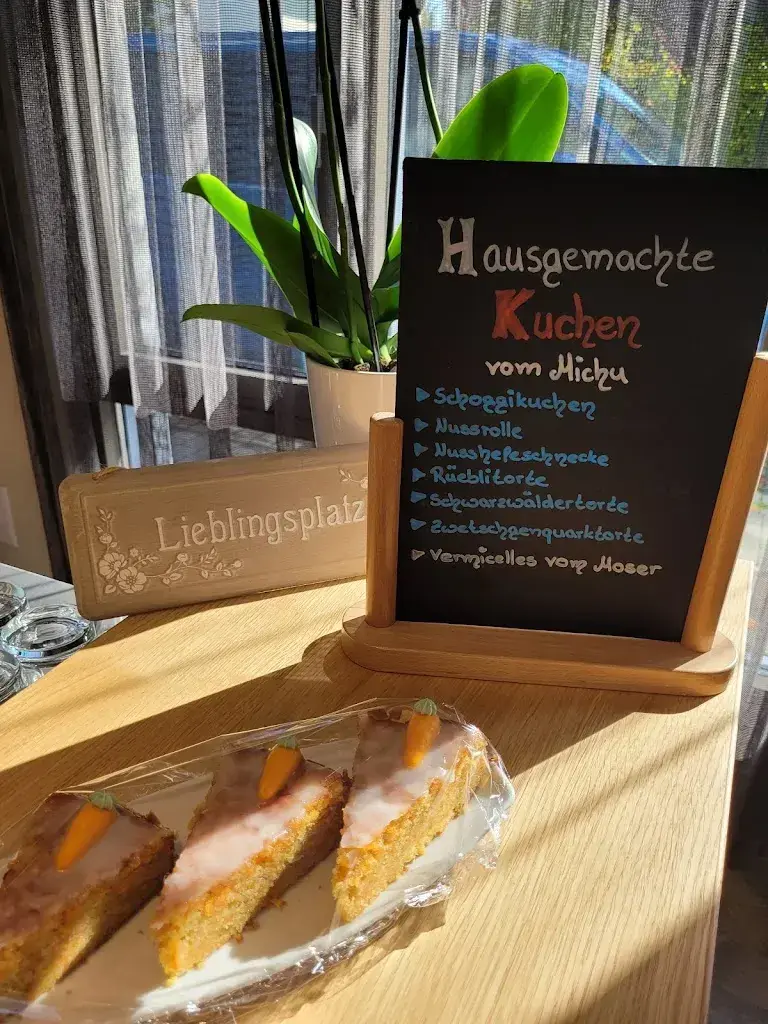 Hausgemachte
Kuchen
vom Michu
▶ Schoggikuchen
▶ Nussrolle
▶ Nusshefeschnecke
▶ Rüeblitorte
▶ Schwarzwäldertorte
▶ Zwetschgenquarktorte
▶ Vermicelles vom Moser
Lieblingsplatz